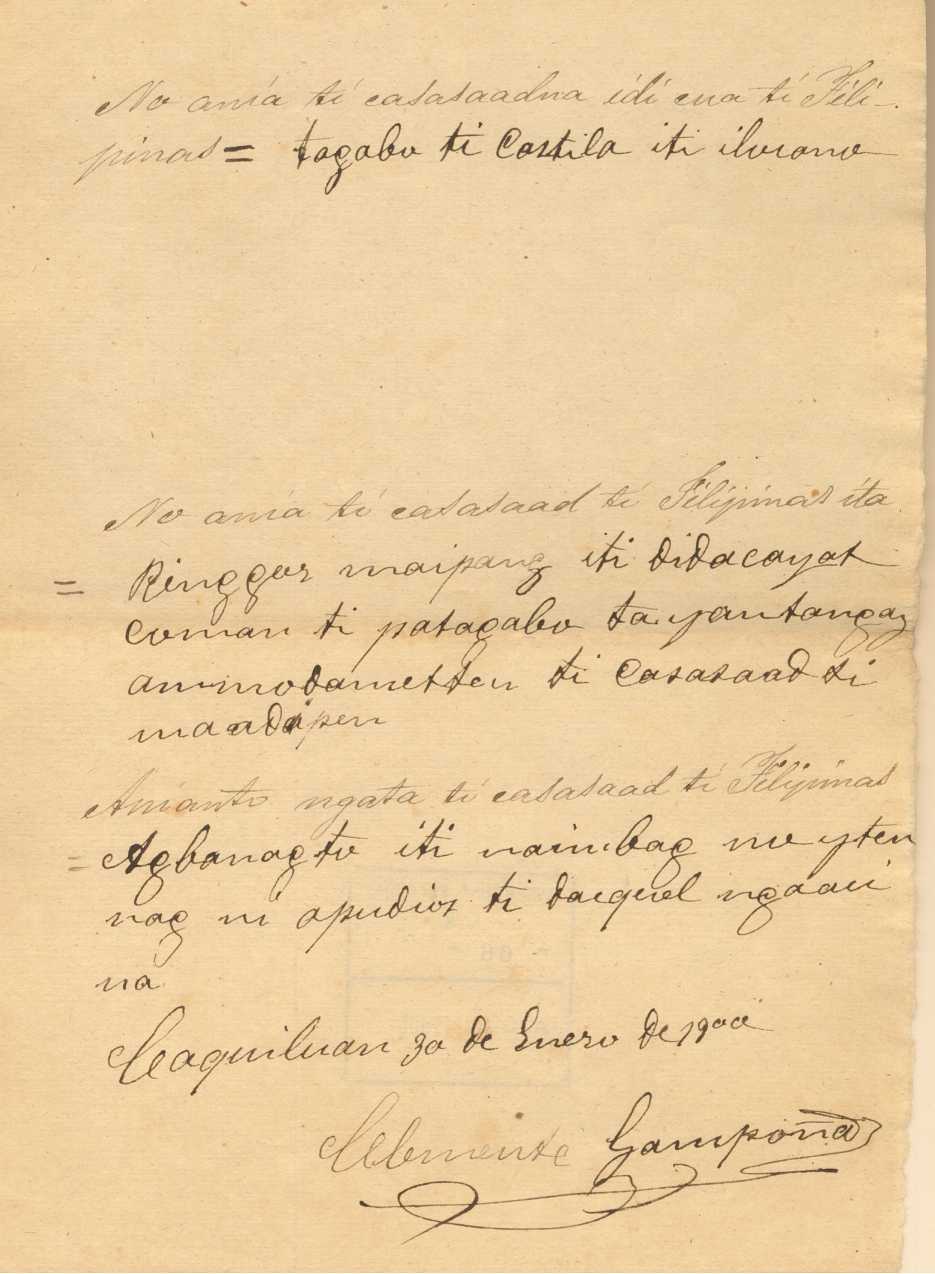 No ania ti casasaadna idi cua ti Fili-
pinas = tagabo ti Castila iti ilocano
No ania ti casasaad ti Filipinas ita
= Ringgor maipang iti didacayat
coman ti patagabo ta yantangay
ammodametten ti casasaad ti
maadipen
Anianto ngata ti casasaad ti Filipinas
= Agbanagto iti naimbag no yten
nag ni apudios ti dacquel ngaaci
na
30 de Enero de 1900
Clemente Gampoña